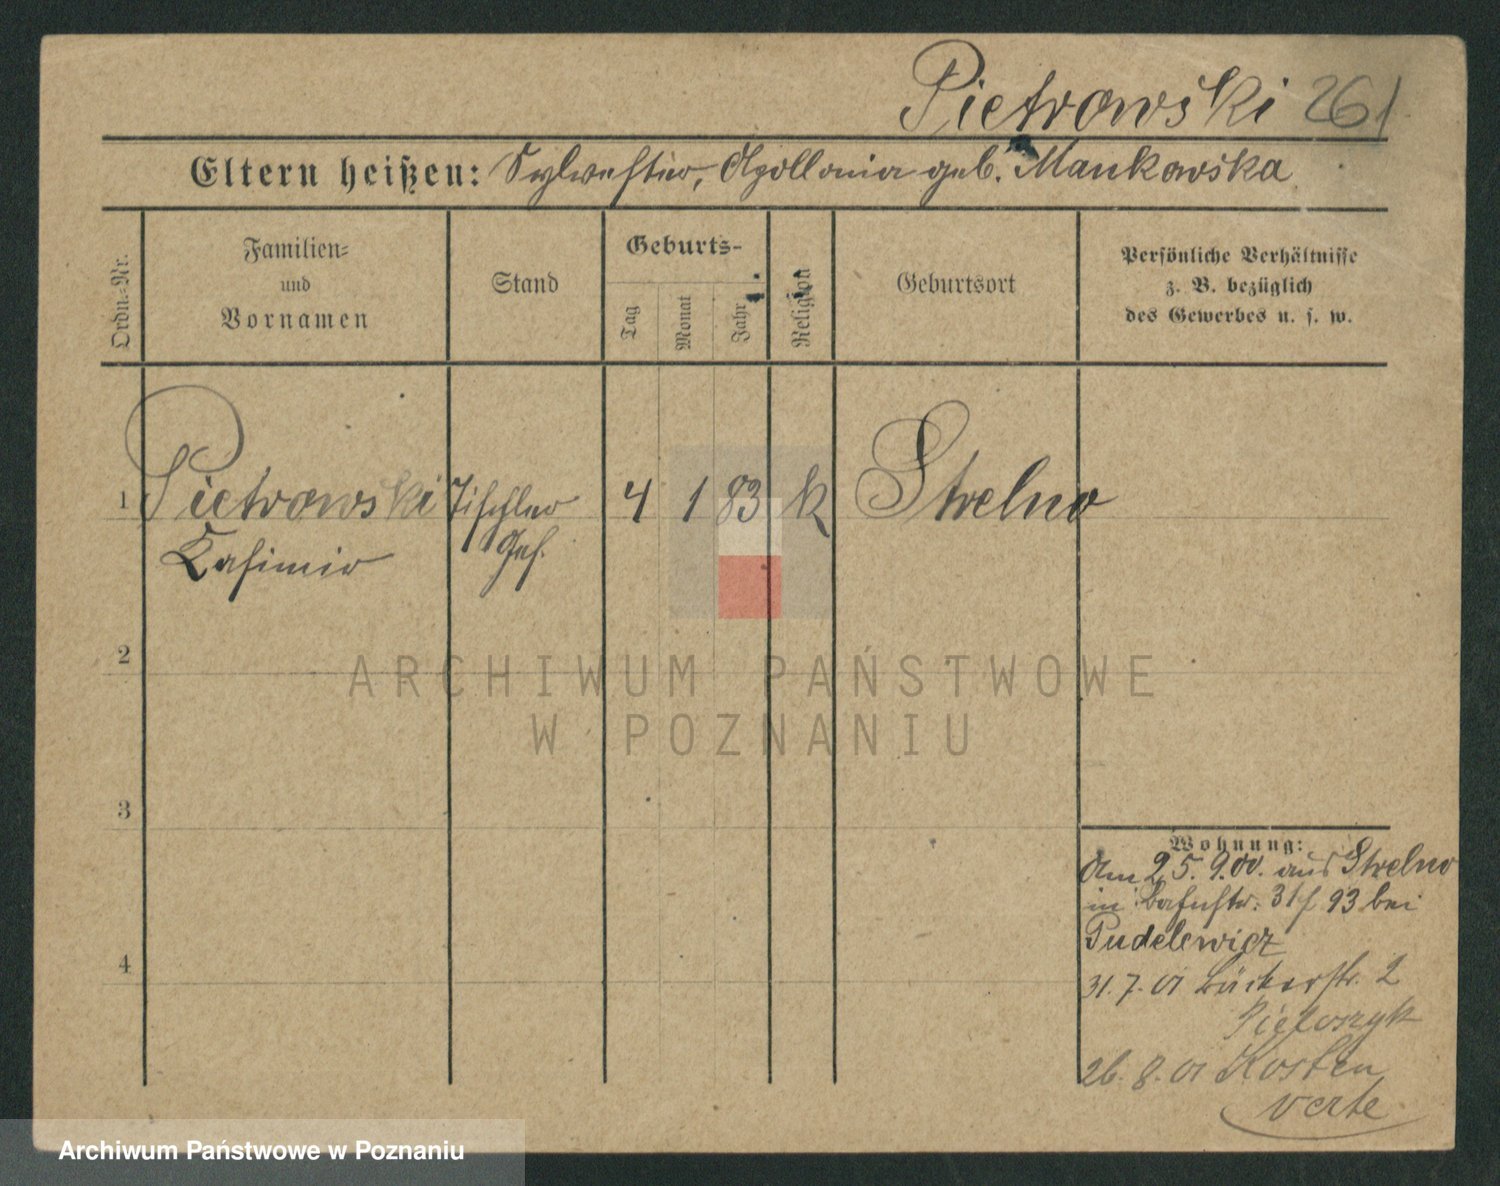 Pietrowski 261
Eltern heißen: Sylvester, Apollonia geb. Mankowska
Ordn.-Nr.
Familien-
und
Vornamen
Stand
Geburts-
Tag
Monat
Jahr
Religion
Geburtsort
Persönliche Verhältnisse
z. B. bezüglich
des Gewerbes u. s. w.
1 Pietrowski Tischler 4 1 83 k Strelno
Kasimir Ges.
2
3
4
Wohnung:
Am 25.9.00. aus Strelno
in Bahnstr. 31 93 bei
Pudelewicz
31.7.01 Bäckerstr. 2
26.8.01 Kosten
verte
ARCHIWUM PAŃSTWOWE
W POZNANIU
Archiwum Państwowe w Poznaniu